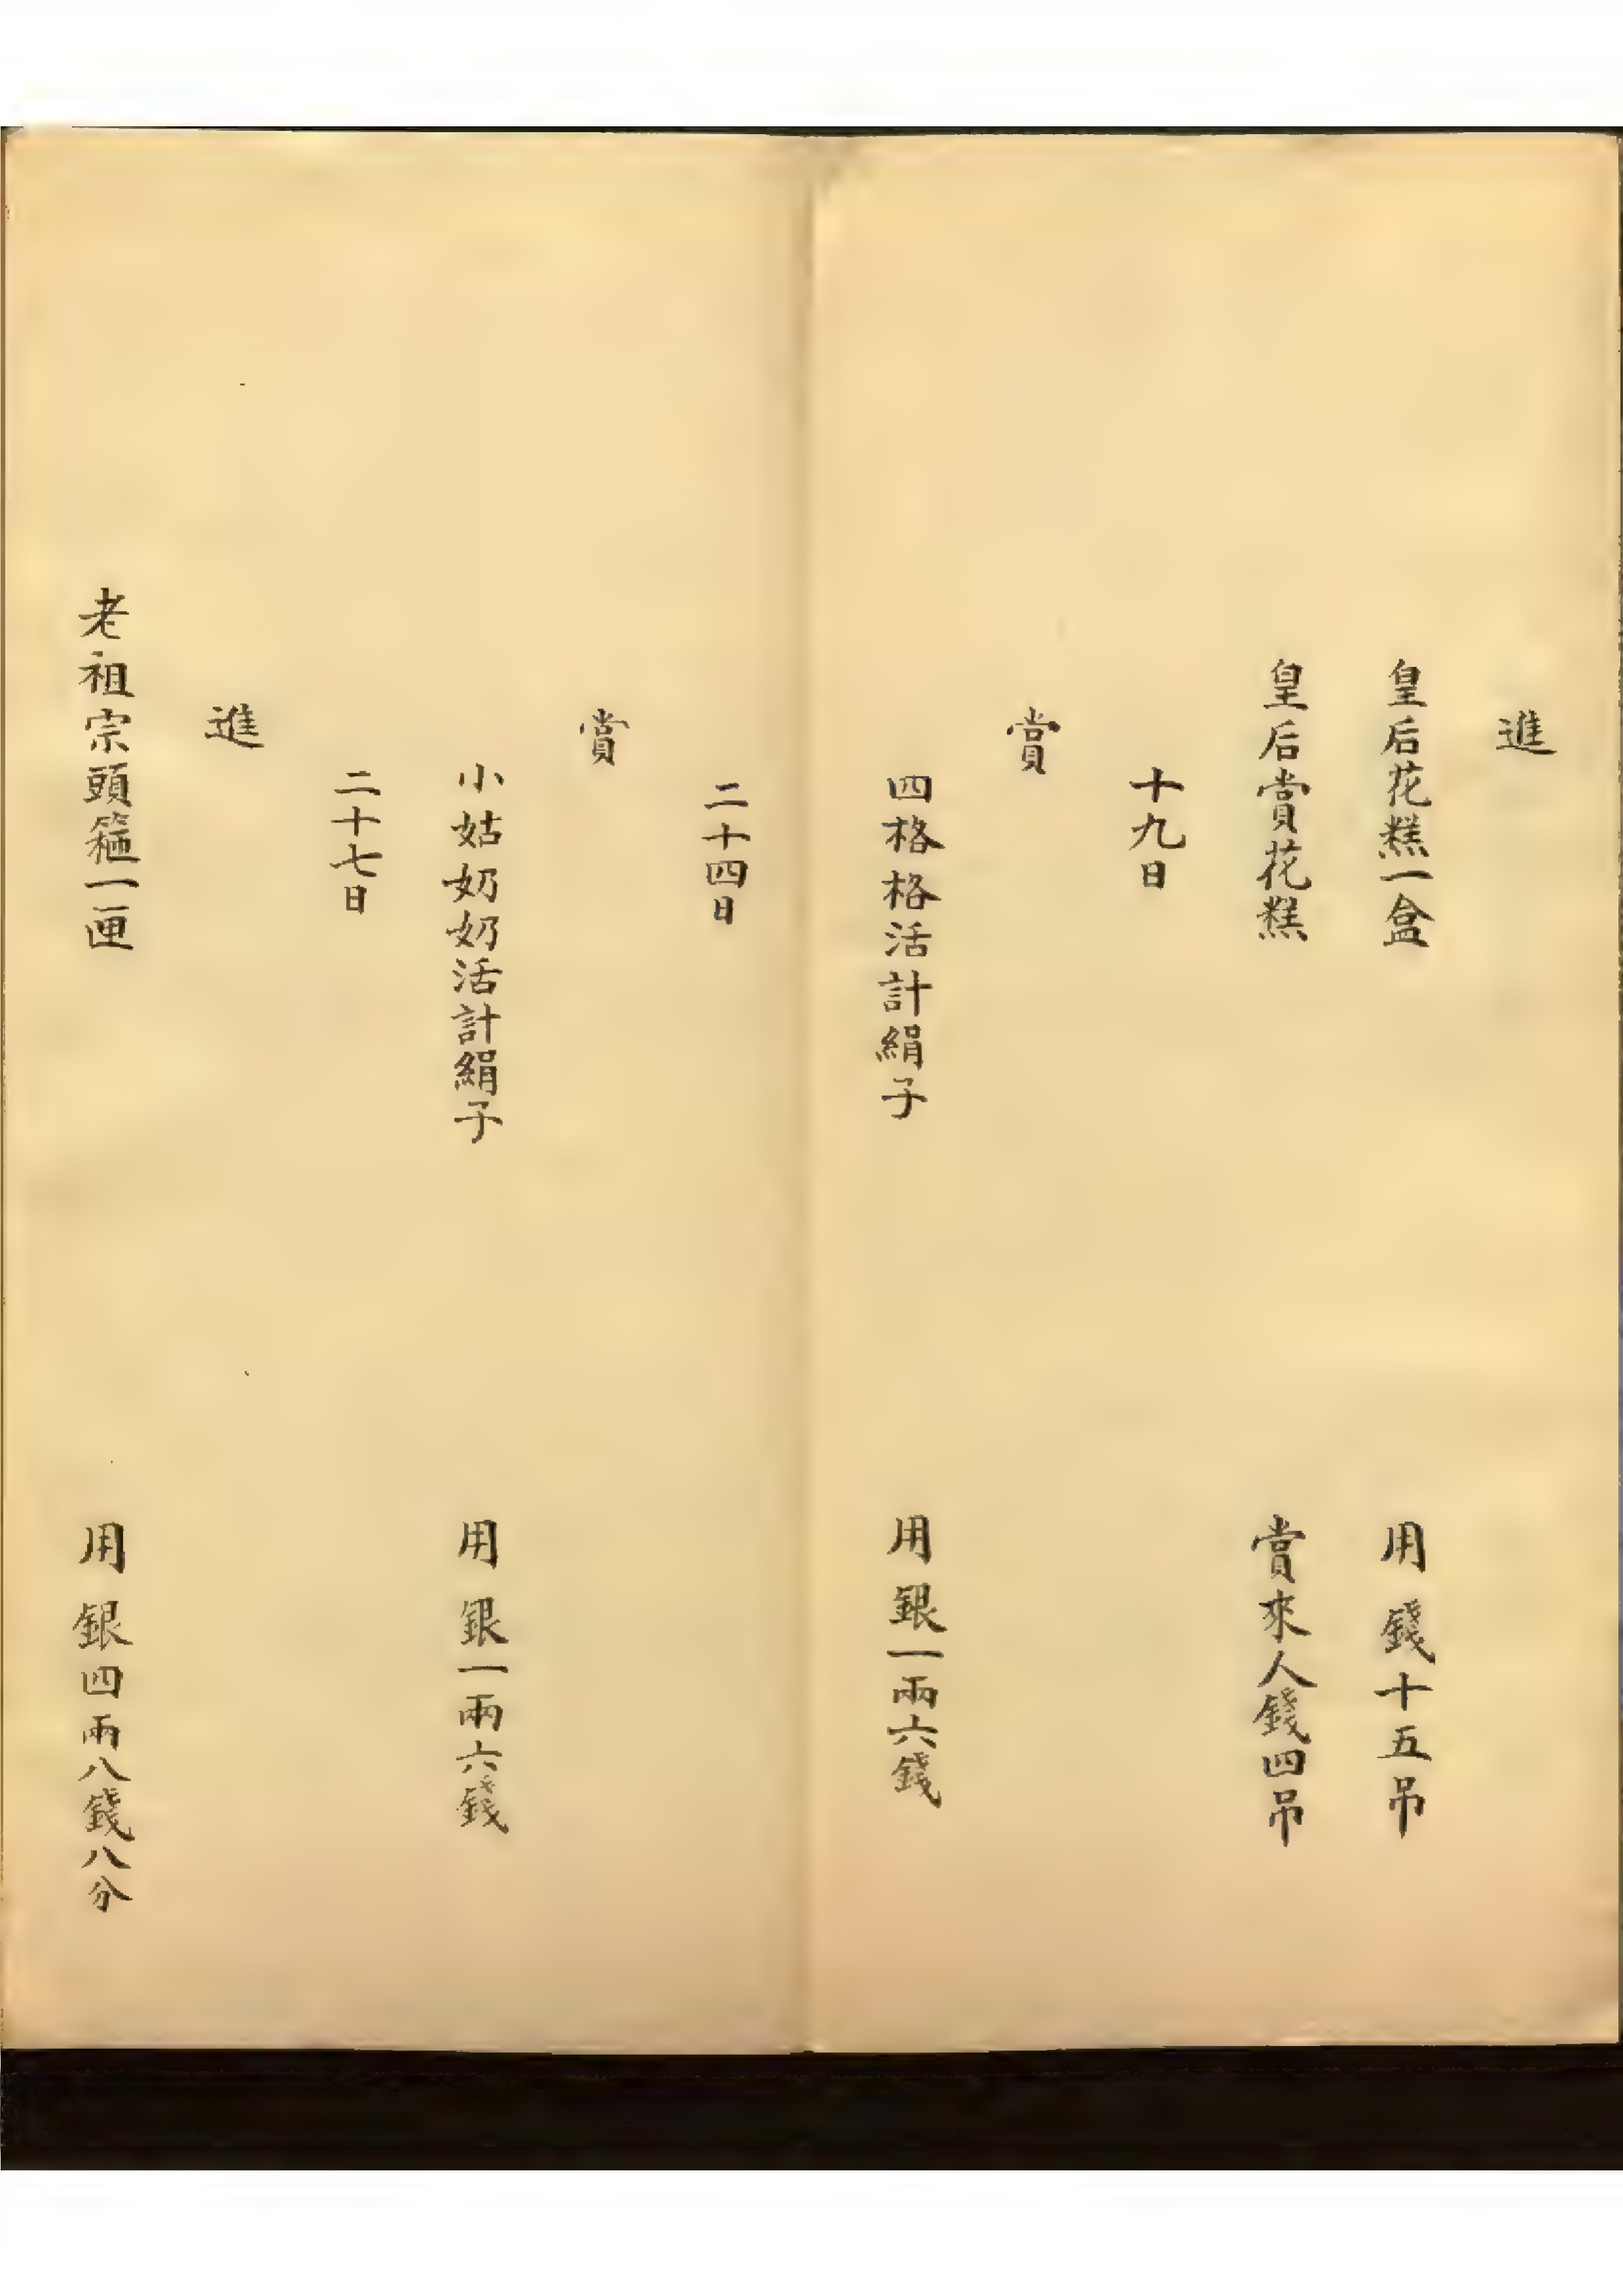 進
皇后花糕一盒　用　錢十五吊
皇后賞花糕　賞來人錢四吊
十九日
賞
四格格活計絹子　用　銀一兩六錢
二十四日
賞
小姑奶奶活計絹子　用　銀一兩六錢
二十七日
進
老祖宗頭箍一匣　用　銀四兩八錢八分